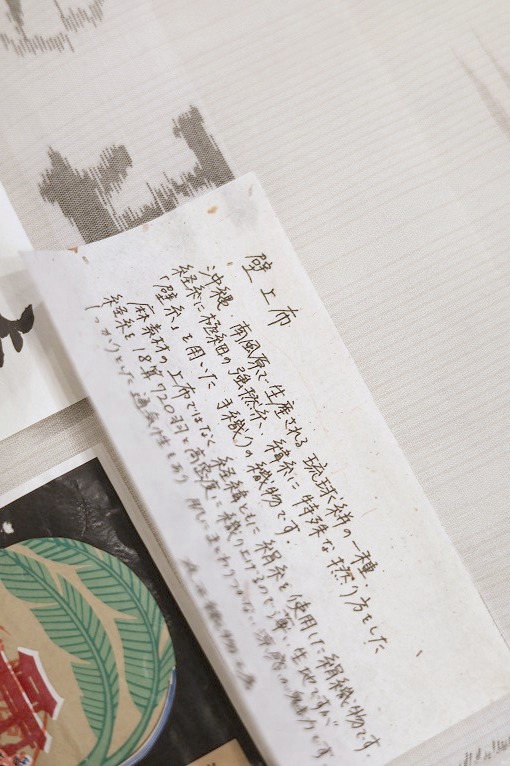 壁上布
沖縄・南風原で生産される琉球絣の一種
経糸に極細の強撚糸、緯糸に特殊な撚り方をした
「壁糸」を用いた手織りの織物です
麻素材の上布ではなく経緯ともに絹糸を使用した絹織物です。
経糸を18算720羽と高密度に織り上げるので薄い生地ですが
しっかりとした通気性もあり肌にまとわりつかない